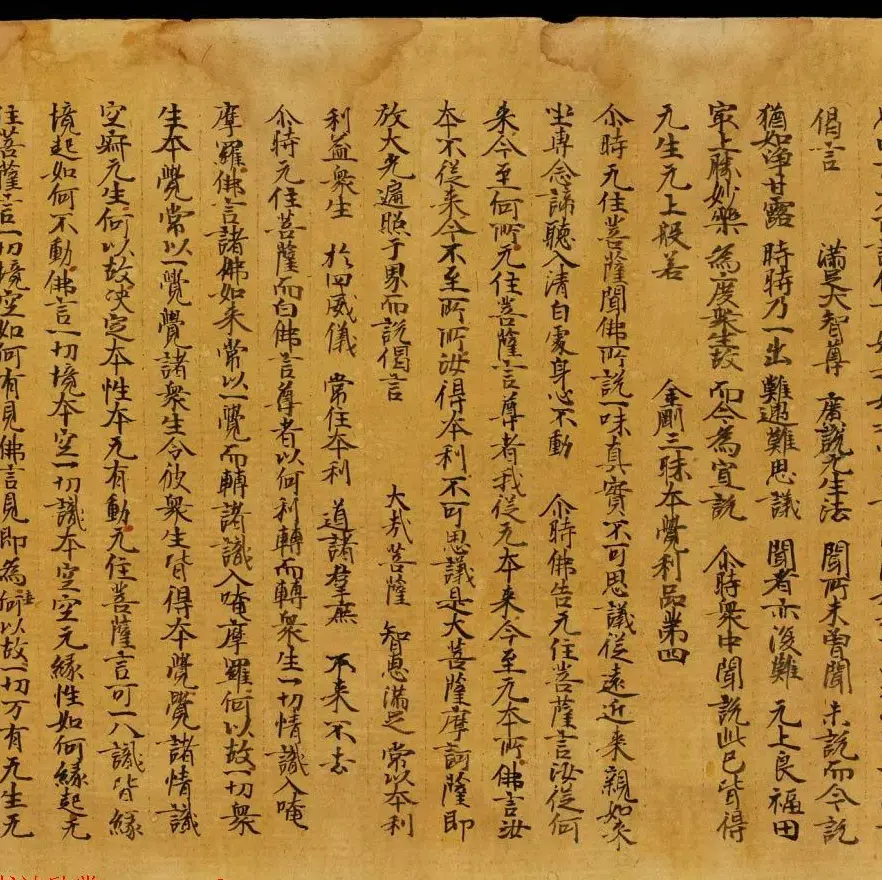 偈言 滿足大智尊 廣說无生法 聞所未曾聞 未說而今說
猶如淨甘露 時時乃一出 難遇難思議 聞者亦復難 无上良福田
最上勝妙藥 為度衆生故 而今為宣說 尒時衆中聞說此已皆得
无生无上般若 金剛三昧本覺利品第四
尒時无住菩薩聞佛所說一味真實不可思議從遠近来親如来
坐專念諦聽入清白處身心不動 尒時佛告无住菩薩言汝從何
来今至何所无住菩薩言尊者我從无本来今至无本所佛言汝
本不從来今不至所所汝得本利不可思議是大菩薩摩訶薩即
放大光遍照千界而說偈言 大哉菩薩 智惠滿足 常以本利
利益衆生 於四威儀 常住本利 道諸羣庶 不来不去
尒時无住菩薩而白佛言尊者以何利轉而轉衆生一切情識入唵
摩羅佛言諸佛如来常以一覺而轉諸識入唵摩羅何以故一切衆
生本覺常以一覺覺諸衆生令彼衆生皆得本覺覺諸情識
空寂无生何以故决定本性本无有動无住菩薩言可一八識皆緣
境起如何不動佛言一切境本空一切識本空空无緣性如何緣起无
住菩薩言一切境空如何有見佛言見即為何以故一切万有无生无